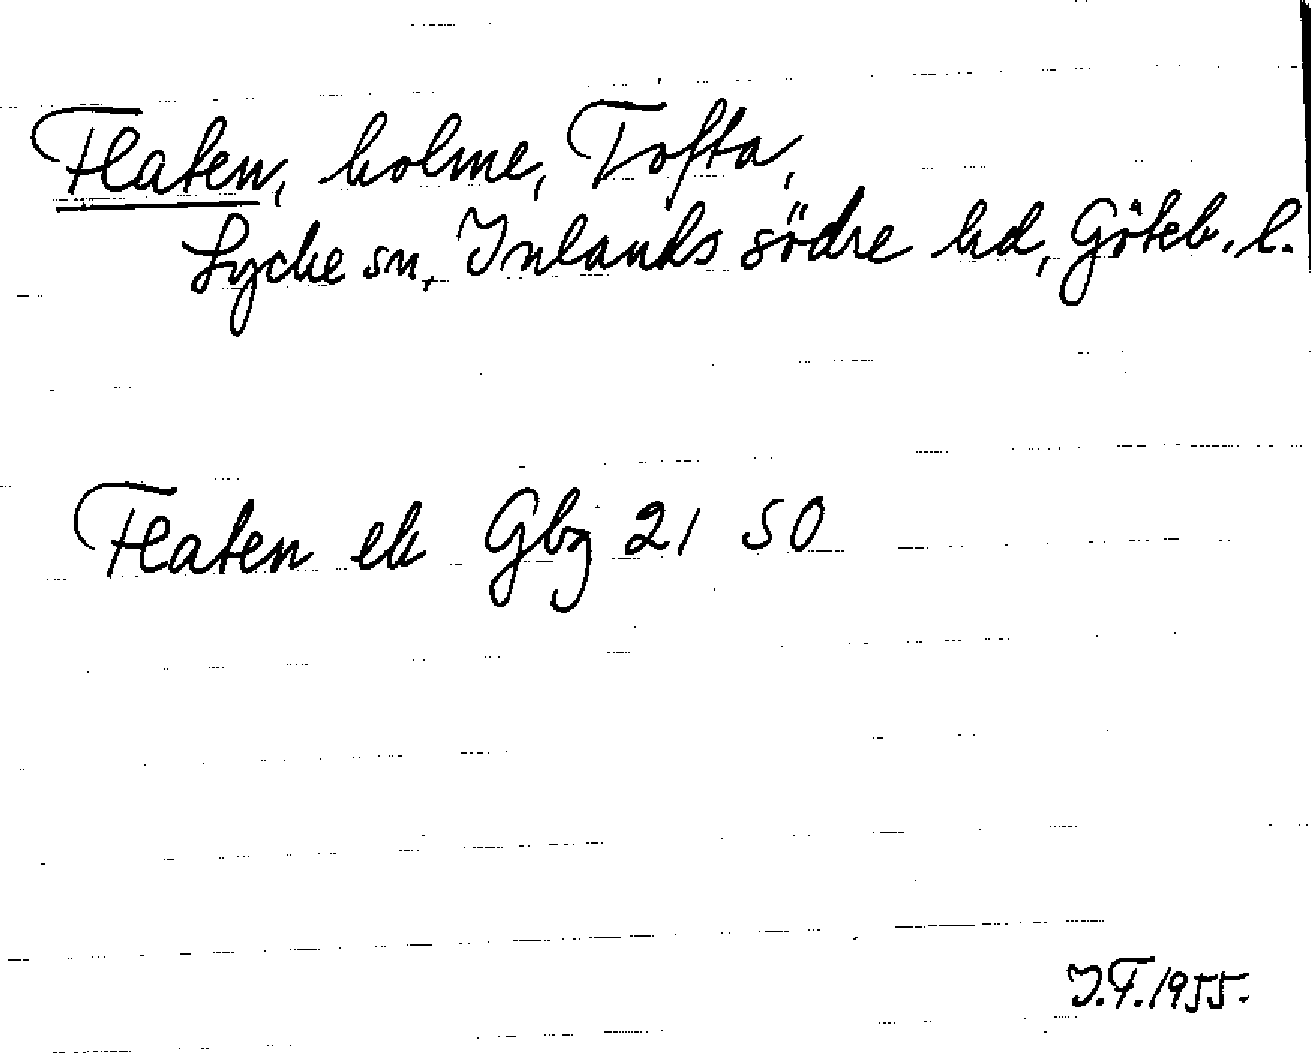 Flaten, holme, Tofta,
Lycke sn, Inlands södre hd, Göteb. l.
Flaten ek Gbg 21 SO
I.F. 1955.